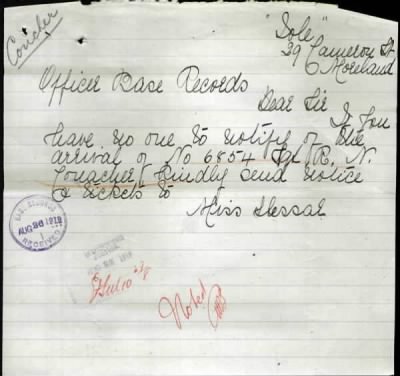 Coucher
"Iole"
39 Cameron St
Moreland
Officer Base Records
Dear Sir
If you
have no one to notify of the
arrival of No 6854 Sgt R. N.
Coucher kindly send notice
& tickets to
Miss Hessar
BASE RECORDS
RECEIVED
Noted